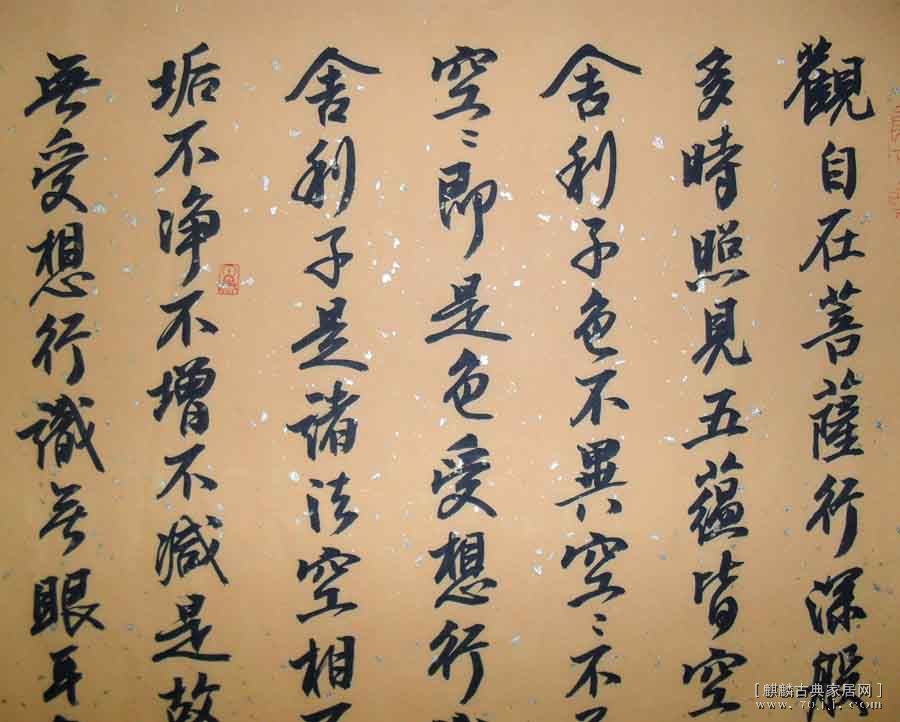 觀自在菩薩行深般
多時照見五蘊皆空
舍利子色不異空〻不
空〻即是色受想行
舍利子是諸法空相不
垢不净不增不減是故
無受想行識無眼耳
[麒麟古典家居网]
www.70jj.com